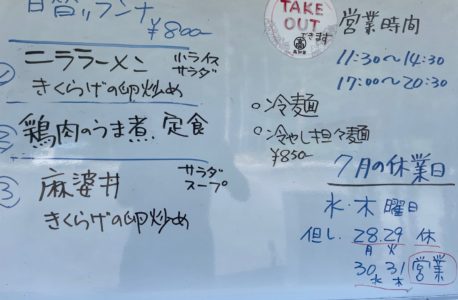 日替りランチ
¥800-
ニララーメン 小ライス サラダ
きくらげの卵炒め
② 鶏肉のうま煮 定食
③ 麻婆丼 サラダ スープ
きくらげの卵炒め
TAKE OUT
できます
営業時間
11:30〜14:30
17:00〜20:30
○冷麺
○冷やし担々麺
¥850-
7月の休業日
水・木 曜日
但し. 28.29 休
月 火
30.31 営業
水 木